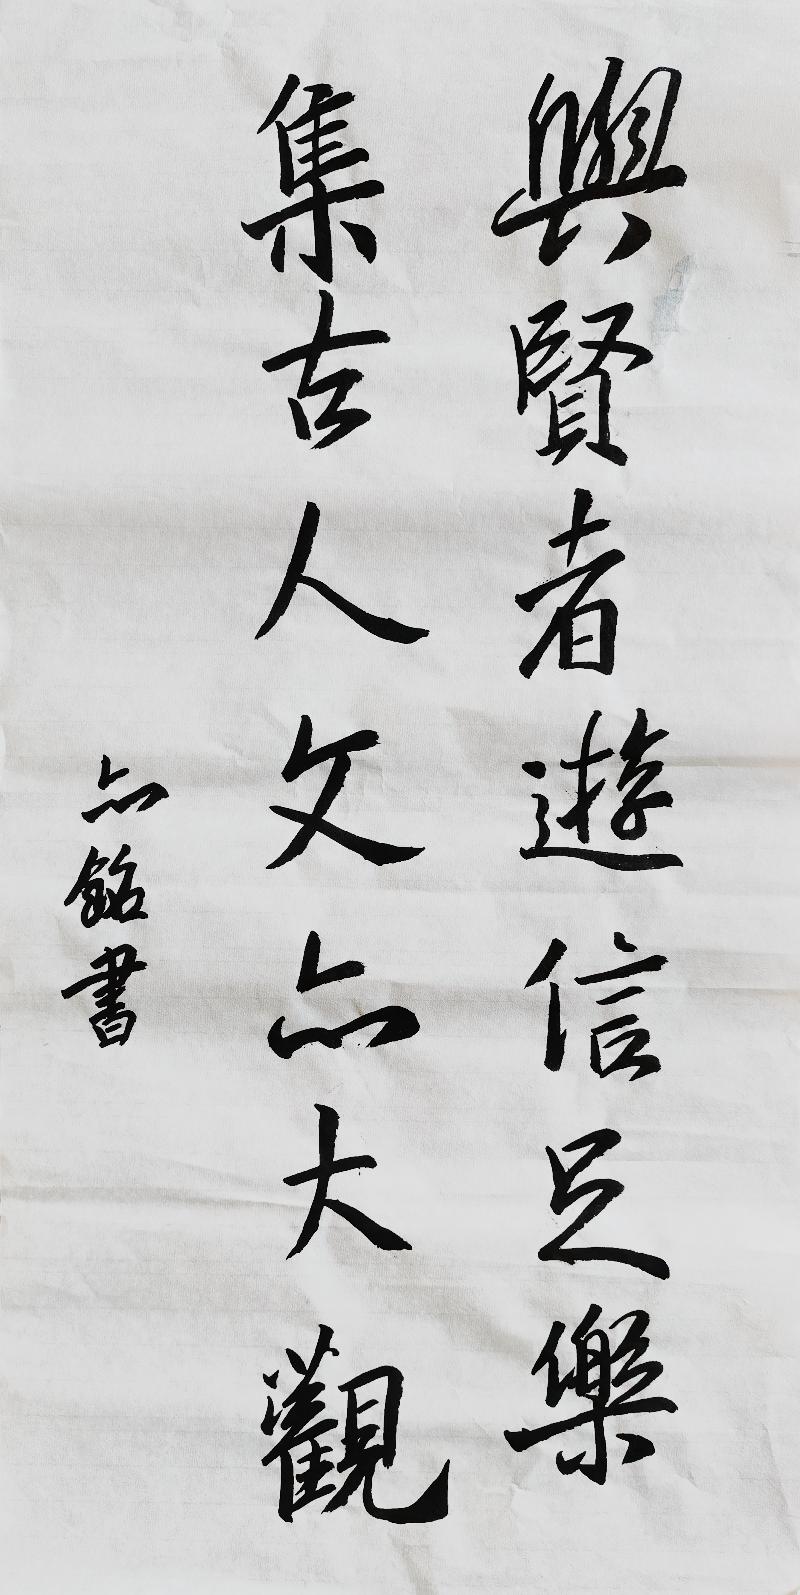 與賢者遊信足樂
集古人文亦大觀
亦銘書